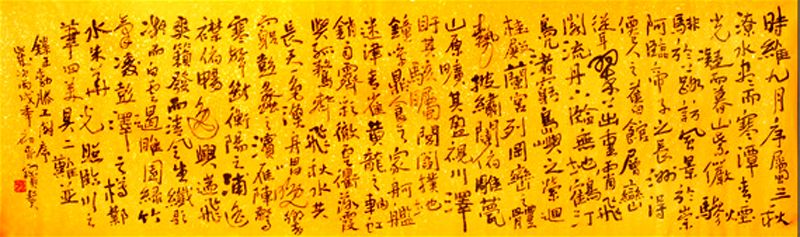 時維九月序屬三秋
潦水盡而寒潭清煙
光凝而暮山紫儼驂
騑於上路訪風景於崇
阿臨帝子之長洲得
僊人之舊館層巒
聳翠上出重霄飛
閣流丹下臨無地鶴汀
鳧渚窮島嶼之縈迴
桂殿蘭宮列岡巒之體
勢披繡闥俯雕甍
山原曠其盈視川澤
盱其駭矚閭閻撲地
鐘鳴鼎食之家舸艦
迷津青雀黃龍之軸虹
銷雨霽彩徹雲衢落霞
與孤鶩齊飛秋水共
長天一色漁舟唱晚響
窮彭蠡之濱雁陣驚
寒聲斷衡陽之浦遙
襟俯暢逸興遄飛
爽籟發而清風生纖歌
凝而白雲遏睢園綠竹
氣凌彭澤之樽鄴
水朱華光照臨川之
筆四美具二難並
錄王勃滕王閣序
歲次丙戌年